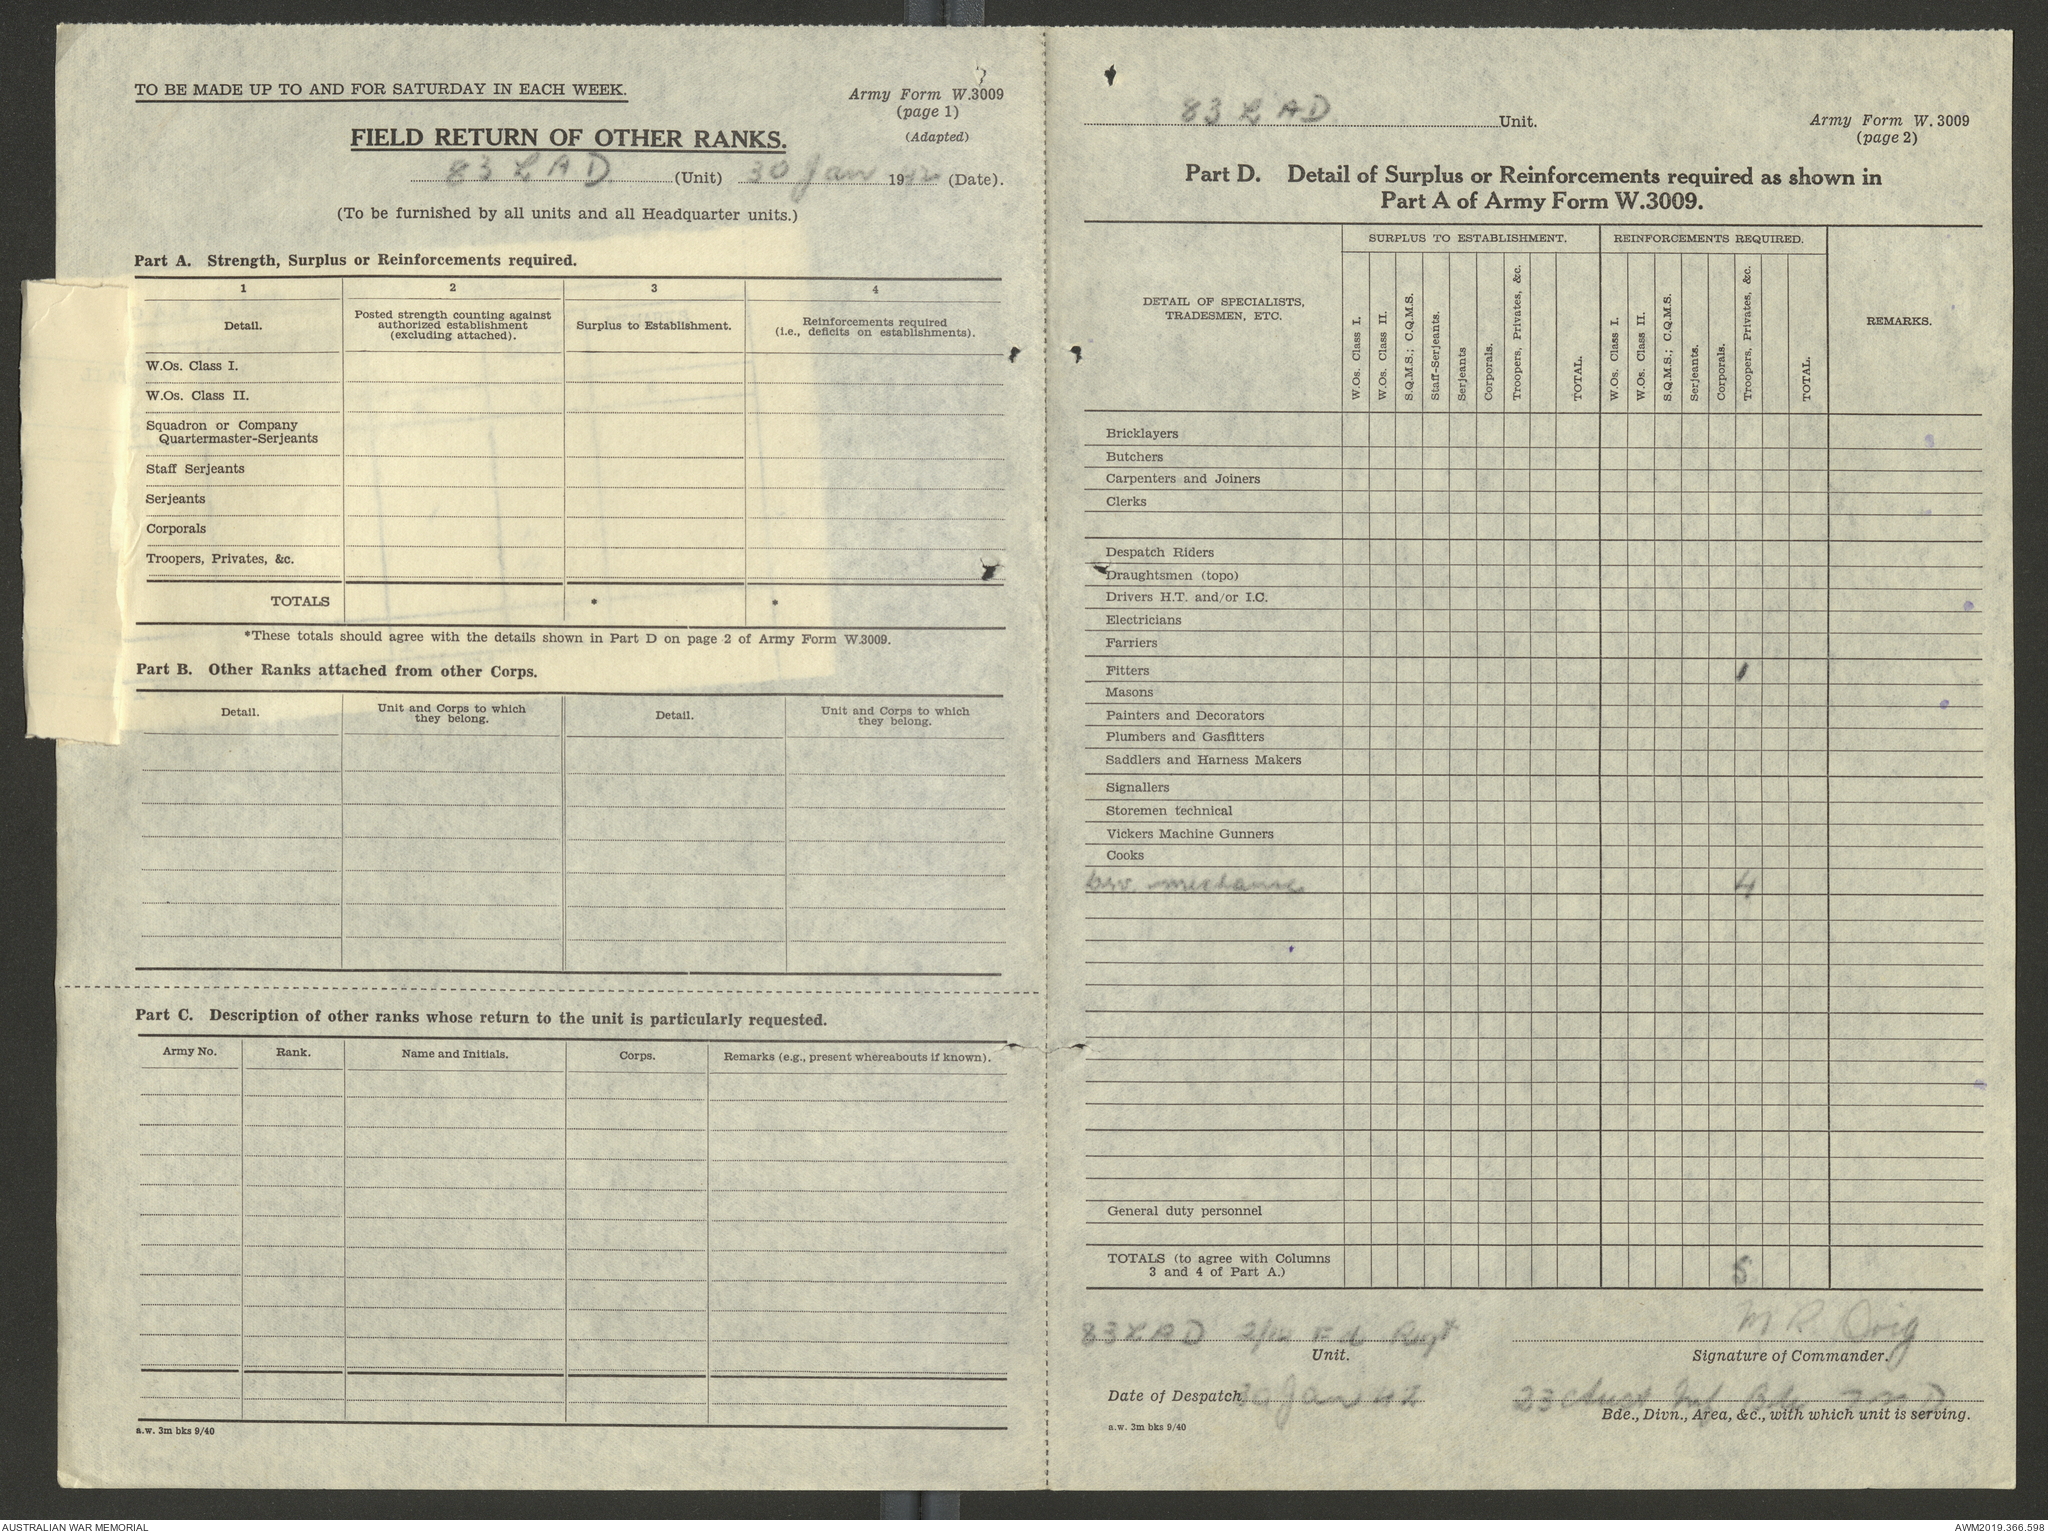 TO BE MADE UP TO AND FOR SATURDAY IN EACH WEEK.
Army Form W.3009
(page 1)
(Adapted)
FIELD RETURN OF OTHER RANKS.
83 L A D (Unit) 30 Jan 1942 (Date).
(To be furnished by all units and all Headquarter units.)
Part A. Strength, Surplus or Reinforcements required.
1 2 3 4
Detail.
Posted strength counting against
authorized establishment
(excluding attached).
Surplus to Establishment.
Reinforcements required
(i.e., deficits on establishments).
W.Os. Class I.
W.Os. Class II.
Squadron or Company
Quartermaster-Serjeants
Staff Serjeants
Serjeants
Corporals
Troopers, Privates, &c.
TOTALS * *
*These totals should agree with the details shown in Part D on page 2 of Army Form W.3009.
Part B. Other Ranks attached from other Corps.
Detail.
Unit and Corps to which
they belong.
Detail.
Unit and Corps to which
they belong.
Part C. Description of other ranks whose return to the unit is particularly requested.
Army No. Rank. Name and Initials. Corps. Remarks (e.g., present whereabouts if known).
a.w. 3m bks 9/40
83 L A D Unit.
Army Form W. 3009
(page 2)
Part D. Detail of Surplus or Reinforcements required as shown in
Part A of Army Form W.3009.
DETAIL OF SPECIALISTS,
TRADESMEN, ETC.
SURPLUS TO ESTABLISHMENT.
W.Os. Class I.
W.Os. Class II.
S.Q.M.S.; C.Q.M.S.
Staff-Serjeants.
Serjeants
Corporals.
Troopers, Privates, &c.
TOTAL.
REINFORCEMENTS REQUIRED.
W.Os. Class I.
W.Os. Class II.
S.Q.M.S.; C.Q.M.S.
Serjeants.
Corporals.
Troopers, Privates, &c.
TOTAL.
REMARKS.
Bricklayers
Butchers
Carpenters and Joiners
Clerks
Despatch Riders
Draughtsmen (topo)
Drivers H.T. and/or I.C.
Electricians
Farriers
Fitters 1
Masons
Painters and Decorators
Plumbers and Gasfitters
Saddlers and Harness Makers
Signallers
Storemen technical
Vickers Machine Gunners
Cooks
mechanic 4
General duty personnel
TOTALS (to agree with Columns
3 and 4 of Part A.) 5
83 L A D Fd Regt
Unit.
M R Doig
Signature of Commander.
Date of Despatch 30 Jan 42
23 Aust Inf Bde 7 M D
Bde., Divn., Area, &c., with which unit is serving.
a.w. 3m bks 9/40
AUSTRALIAN WAR MEMORIAL
AWM2019.366.598